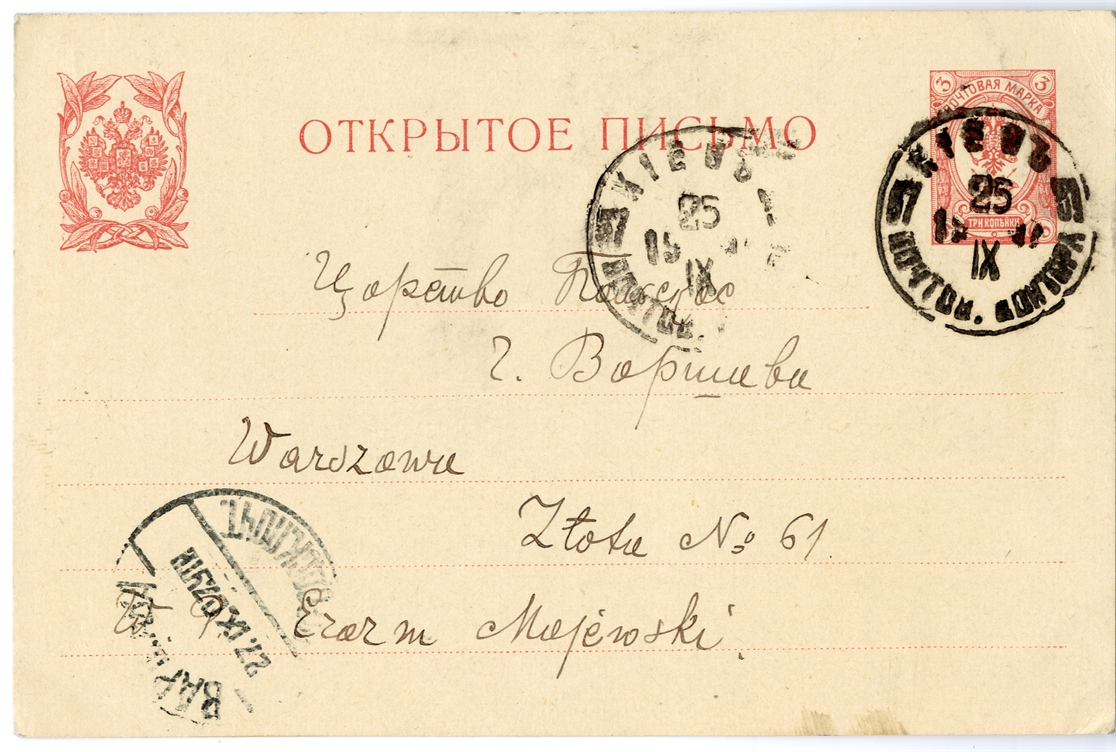 ОТКРЫТОЕ ПИСЬМО
3 3
ПОЧТОВАЯ МАРКА
ТРИ КОПѢЙКИ
КІЕВЪ
25
IX
ПОЧТОВ. КОНТОРА
КІЕВЪ
25
IX
Царство Польское
г. Варшава
Warszawa
Złota No 61
Erazm Majewski
27.IX.07